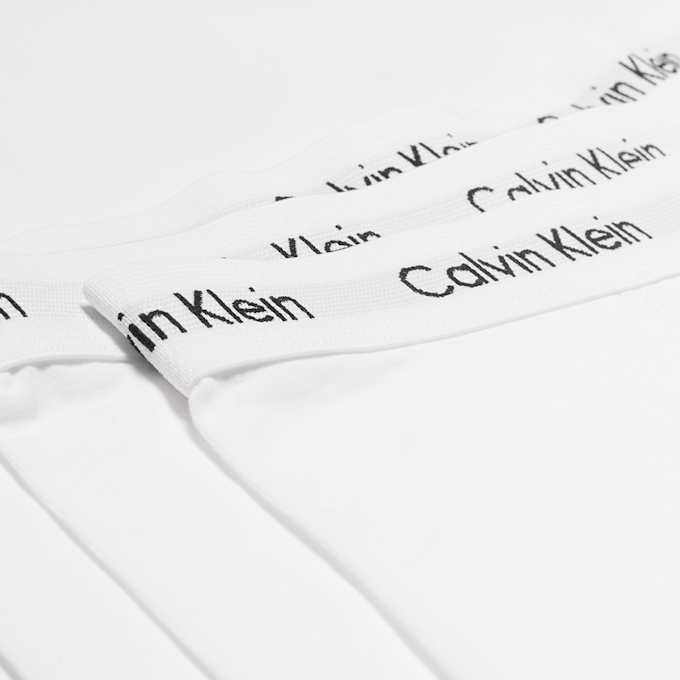 Calvin Klein
Calvin Klein
Calvin Klein
Klein
in Klein
Calvin Klein